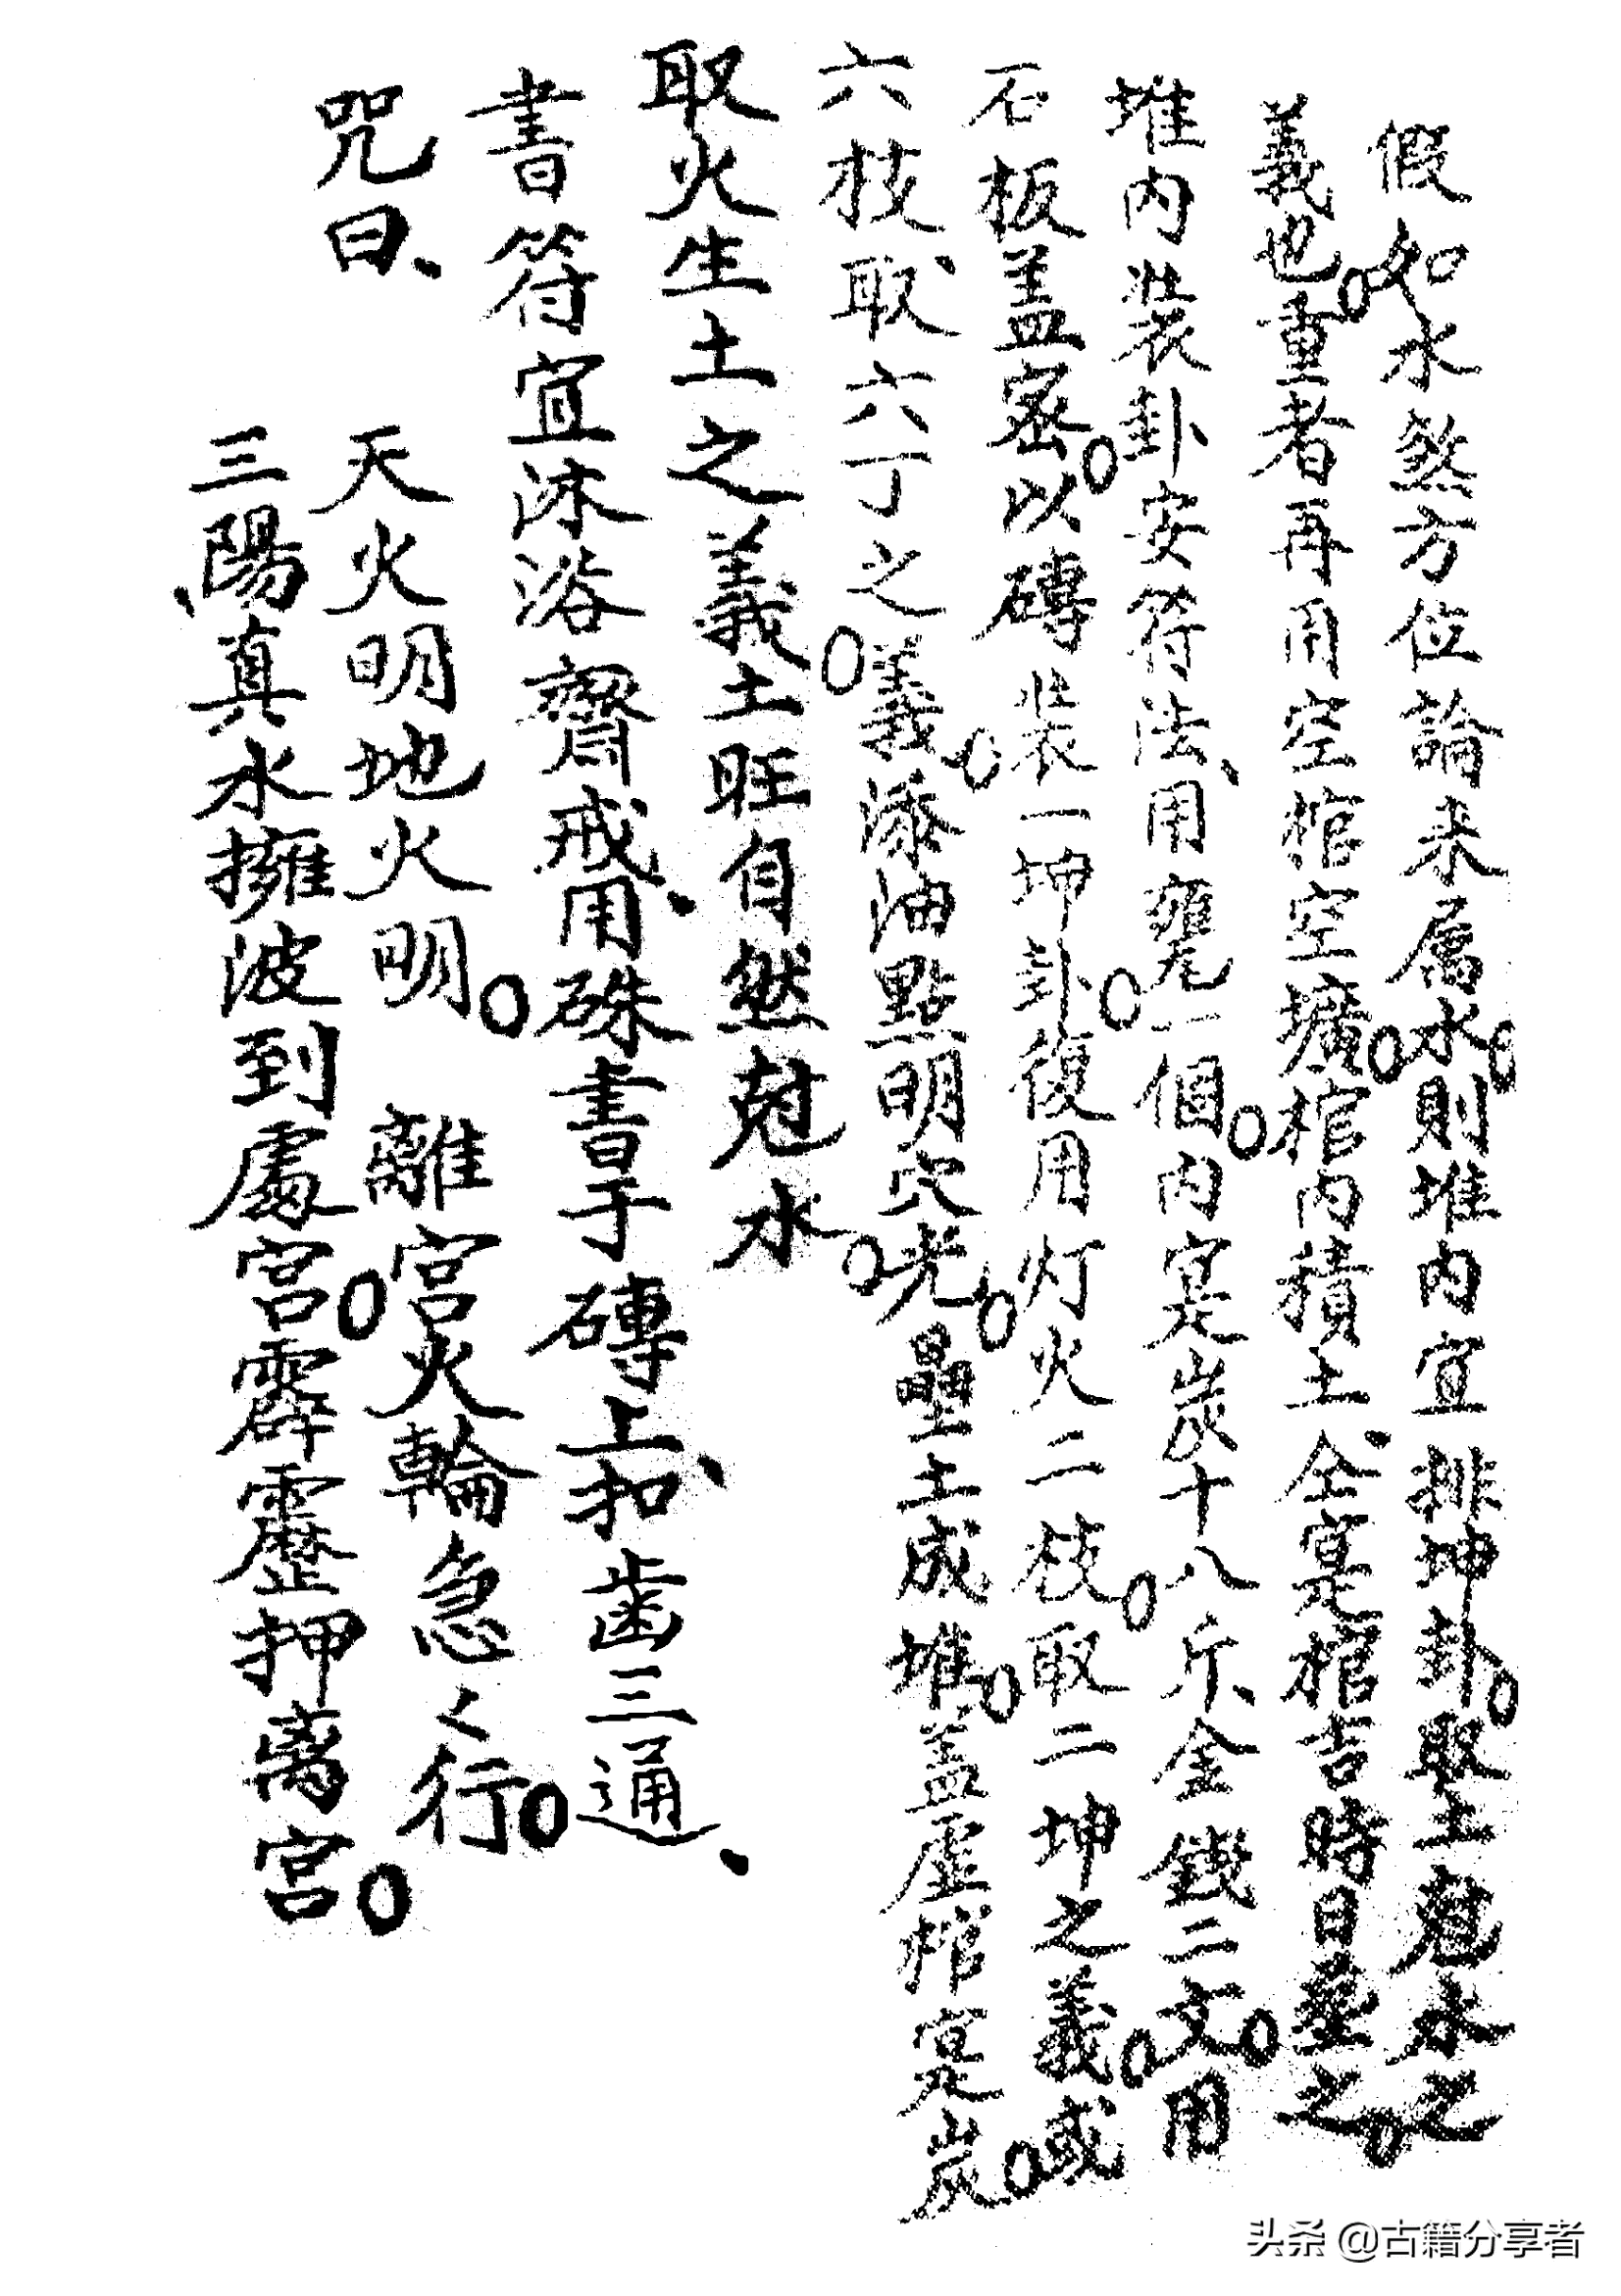 假如水煞方位論来属水。則堆内宜排坤卦。取土尅水之
義也。重者再用空棺空壙。棺内積土、全寔棺吉時日塟之。
堆内装卦安符法、用甕一個。内寔炭十八斤、金錢二文。用
石板盖密。以磚装一坤卦。復用灯火二枝。取二坤之義。或
六枝、取六丁之義。添油點明穴光。壘土成堆。盖虚棺寔炭。
取火生土之義。土旺自然尅水。
書符宜沐浴齋戒、用硃書于磚上、扣歯三通、
咒曰、
天火明地火明。離宮火輪急〻行。
三陽真水擁波到處宮。霹靂押离宮。
头条 @古籍分享者